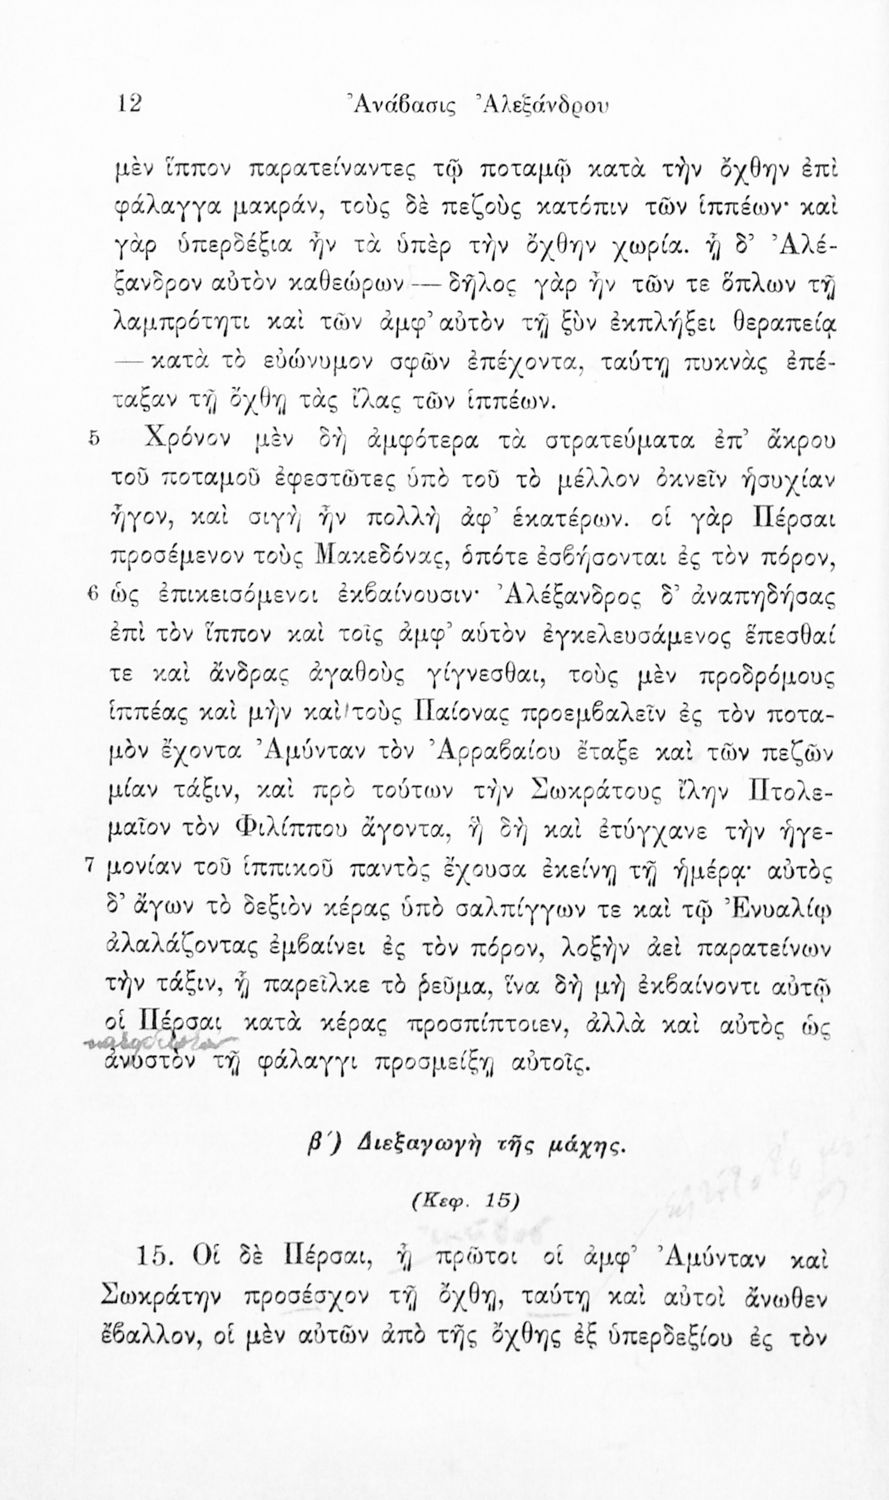 12 Ἀνάβασις Ἀλεξάνδρου
μὲν ἵππον παρατείναντες τῷ ποταμῷ κατὰ τὴν ὄχθην ἐπὶ
φάλαγγα μακράν, τοὺς δὲ πεζοὺς κατόπιν τῶν ἱππέων· καὶ
γὰρ ὑπερδέξια ἦν τὰ ὑπὲρ τὴν ὄχθην χωρία. ᾗ δ’ Ἀλέ-
ξανδρον αὐτὸν καθεώρων — δῆλος γὰρ ἦν τῶν τε ὅπλων τῇ
λαμπρότητι καὶ τῶν ἀμφ’ αὐτὸν τῇ ξὺν ἐκπλήξει θεραπείᾳ
— κατὰ τὸ εὐώνυμον σφῶν ἐπέχοντα, ταύτῃ πυκνὰς ἐπέ-
ταξαν τῇ ὄχθῃ τὰς ἴλας τῶν ἱππέων.
5 Χρόνον μὲν δὴ ἀμφότερα τὰ στρατεύματα ἐπ’ ἄκρου
τοῦ ποταμοῦ ἐφεστῶτες ὑπὸ τοῦ τὸ μέλλον ὀκνεῖν ἡσυχίαν
ἦγον, καὶ σιγὴ ἦν πολλὴ ἀφ’ ἑκατέρων. οἱ γὰρ Πέρσαι
προσέμενον τοὺς Μακεδόνας, ὁπότε ἐσβήσονται ἐς τὸν πόρον,
6 ὡς ἐπικεισόμενοι ἐκβαίνουσιν· Ἀλέξανδρος δ’ ἀναπηδήσας
ἐπὶ τὸν ἵππον καὶ τοῖς ἀμφ’ αὑτὸν ἐγκελευσάμενος ἕπεσθαί
τε καὶ ἄνδρας ἀγαθοὺς γίγνεσθαι, τοὺς μὲν προδρόμους
ἱππέας καὶ μὴν καὶ τοὺς Παίονας προεμβαλεῖν ἐς τὸν ποτα-
μὸν ἔχοντα Ἀμύνταν τὸν Ἀρραβαίου ἔταξε καὶ τῶν πεζῶν
μίαν τάξιν, καὶ πρὸ τούτων τὴν Σωκράτους ἴλην Πτολε-
μαῖον τὸν Φιλίππου ἄγοντα, ἣ δὴ καὶ ἐτύγχανε τὴν ἡγε-
7 μονίαν τοῦ ἱππικοῦ παντὸς ἔχουσα ἐκείνῃ τῇ ἡμέρᾳ· αὐτὸς
δ’ ἄγων τὸ δεξιὸν κέρας ὑπὸ σαλπίγγων τε καὶ τῷ Ἐνυαλίῳ
ἀλαλάζοντας ἐμβαίνει ἐς τὸν πόρον, λοξὴν ἀεὶ παρατείνων
τὴν τάξιν, ᾗ παρεῖλκε τὸ ῥεῦμα, ἵνα δὴ μὴ ἐκβαίνοντι αὐτῷ
οἱ Πέρσαι κατὰ κέρας προσπίπτοιεν, ἀλλὰ καὶ αὐτὸς ὡς
ἀνυστὸν τῇ φάλαγγι προσμείξῃ αὐτοῖς.
β΄) Διεξαγωγὴ τῆς μάχης.
(Κεφ. 15)
15. Οἱ δὲ Πέρσαι, ᾗ πρῶτοι οἱ ἀμφ’ Ἀμύνταν καὶ
Σωκράτην προσέσχον τῇ ὄχθῃ, ταύτῃ καὶ αὐτοὶ ἄνωθεν
ἔβαλλον, οἱ μὲν αὐτῶν ἀπὸ τῆς ὄχθης ἐξ ὑπερδεξίου ἐς τὸν